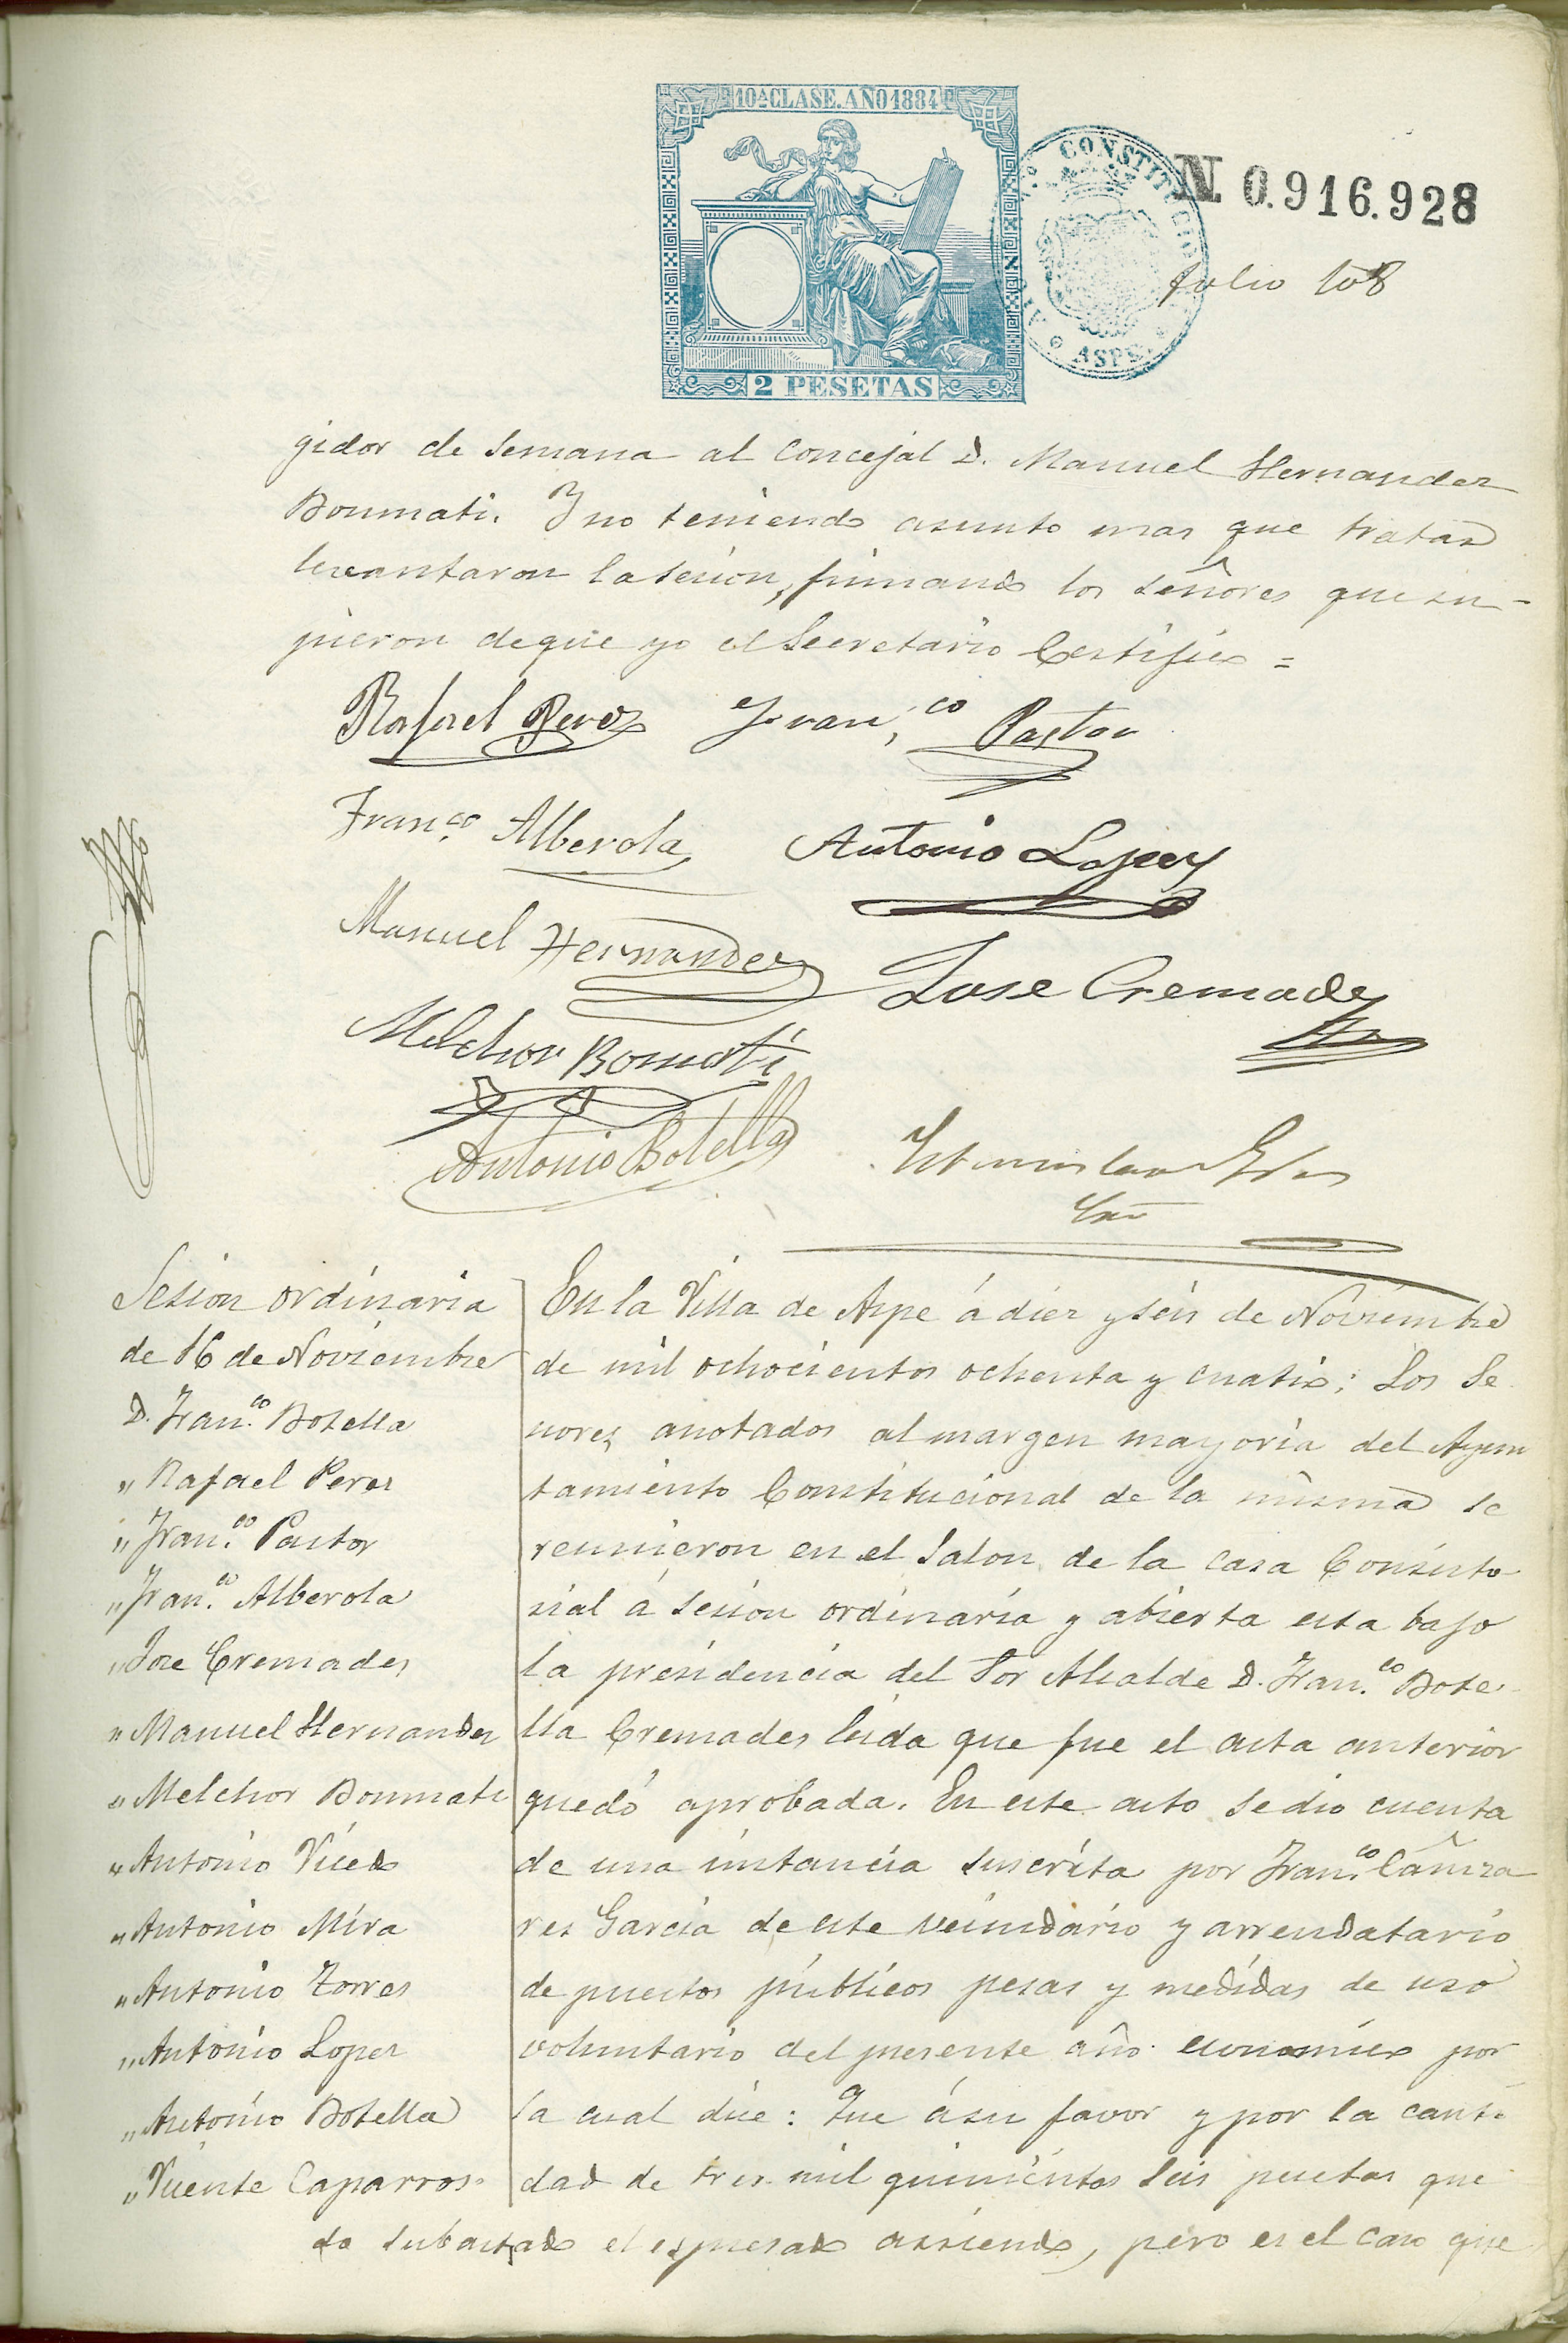 10ª CLASE. AÑO 1884
2 PESETAS
CONSTITUCION
ASPE
N. 0.916.928
folio 108
gidor de semana al concejal D. Manuel Hernandez
Boumati. Y no teniendo asunto mas que tratar
levantaron la sesion, firmando los señores que su-
pieron de que yo el Secretario Certifico =
Rafael Perez Fran.co Pastor
Fran.co Alberola Antonio Lopez
Manuel Hernandez Jose Cremades
Melchor Bomati
Antonio Botella
Srio
Sesion ordinaria
de 16 de Noviembre
D. Fran.co Botella
" Rafael Perez
" Fran.co Pastor
" Fran.co Alberola
" Jose Cremades
" Manuel Hernandez
" Melchor Boumati
" Antonio Vicedo
" Antonio Mira
" Antonio Torres
" Antonio Lopez
" Antonio Botella
" Vicente Caparros
En la Villa de Aspe á diez y seis de Noviembre
de mil ochocientos ochenta y cuatro; Los Se
nores anotados al margen mayoria del Ayun
tamiento Constitucional de la misma se
reunieron en el Salon de la casa Consisto
rial á sesion ordinaria y abierta esta bajo
la presidencia del Sor Alcalde D. Fran.co Bote
lla Cremades leida que fue el acta anterior
quedó aprobada. En este acto se dio cuenta
de una instancia suscrita por Fran.co Cañiza
res Garcia de este vecindario y arrendatario
de puestos públicos pesas y medidas de uso
voluntario del presente año economico por
la cual dice: Que á su favor y por la canti
dad de tres mil quinientas seis pesetas que
do subastado el espresado arriendo, pero es el caso que